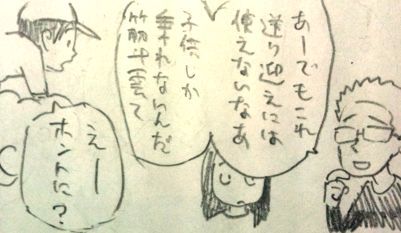 あーでもこれ
送り迎えには
使えないなあ
子供しか
乗れないんだ
筋斗雲て
えー
ホントに?